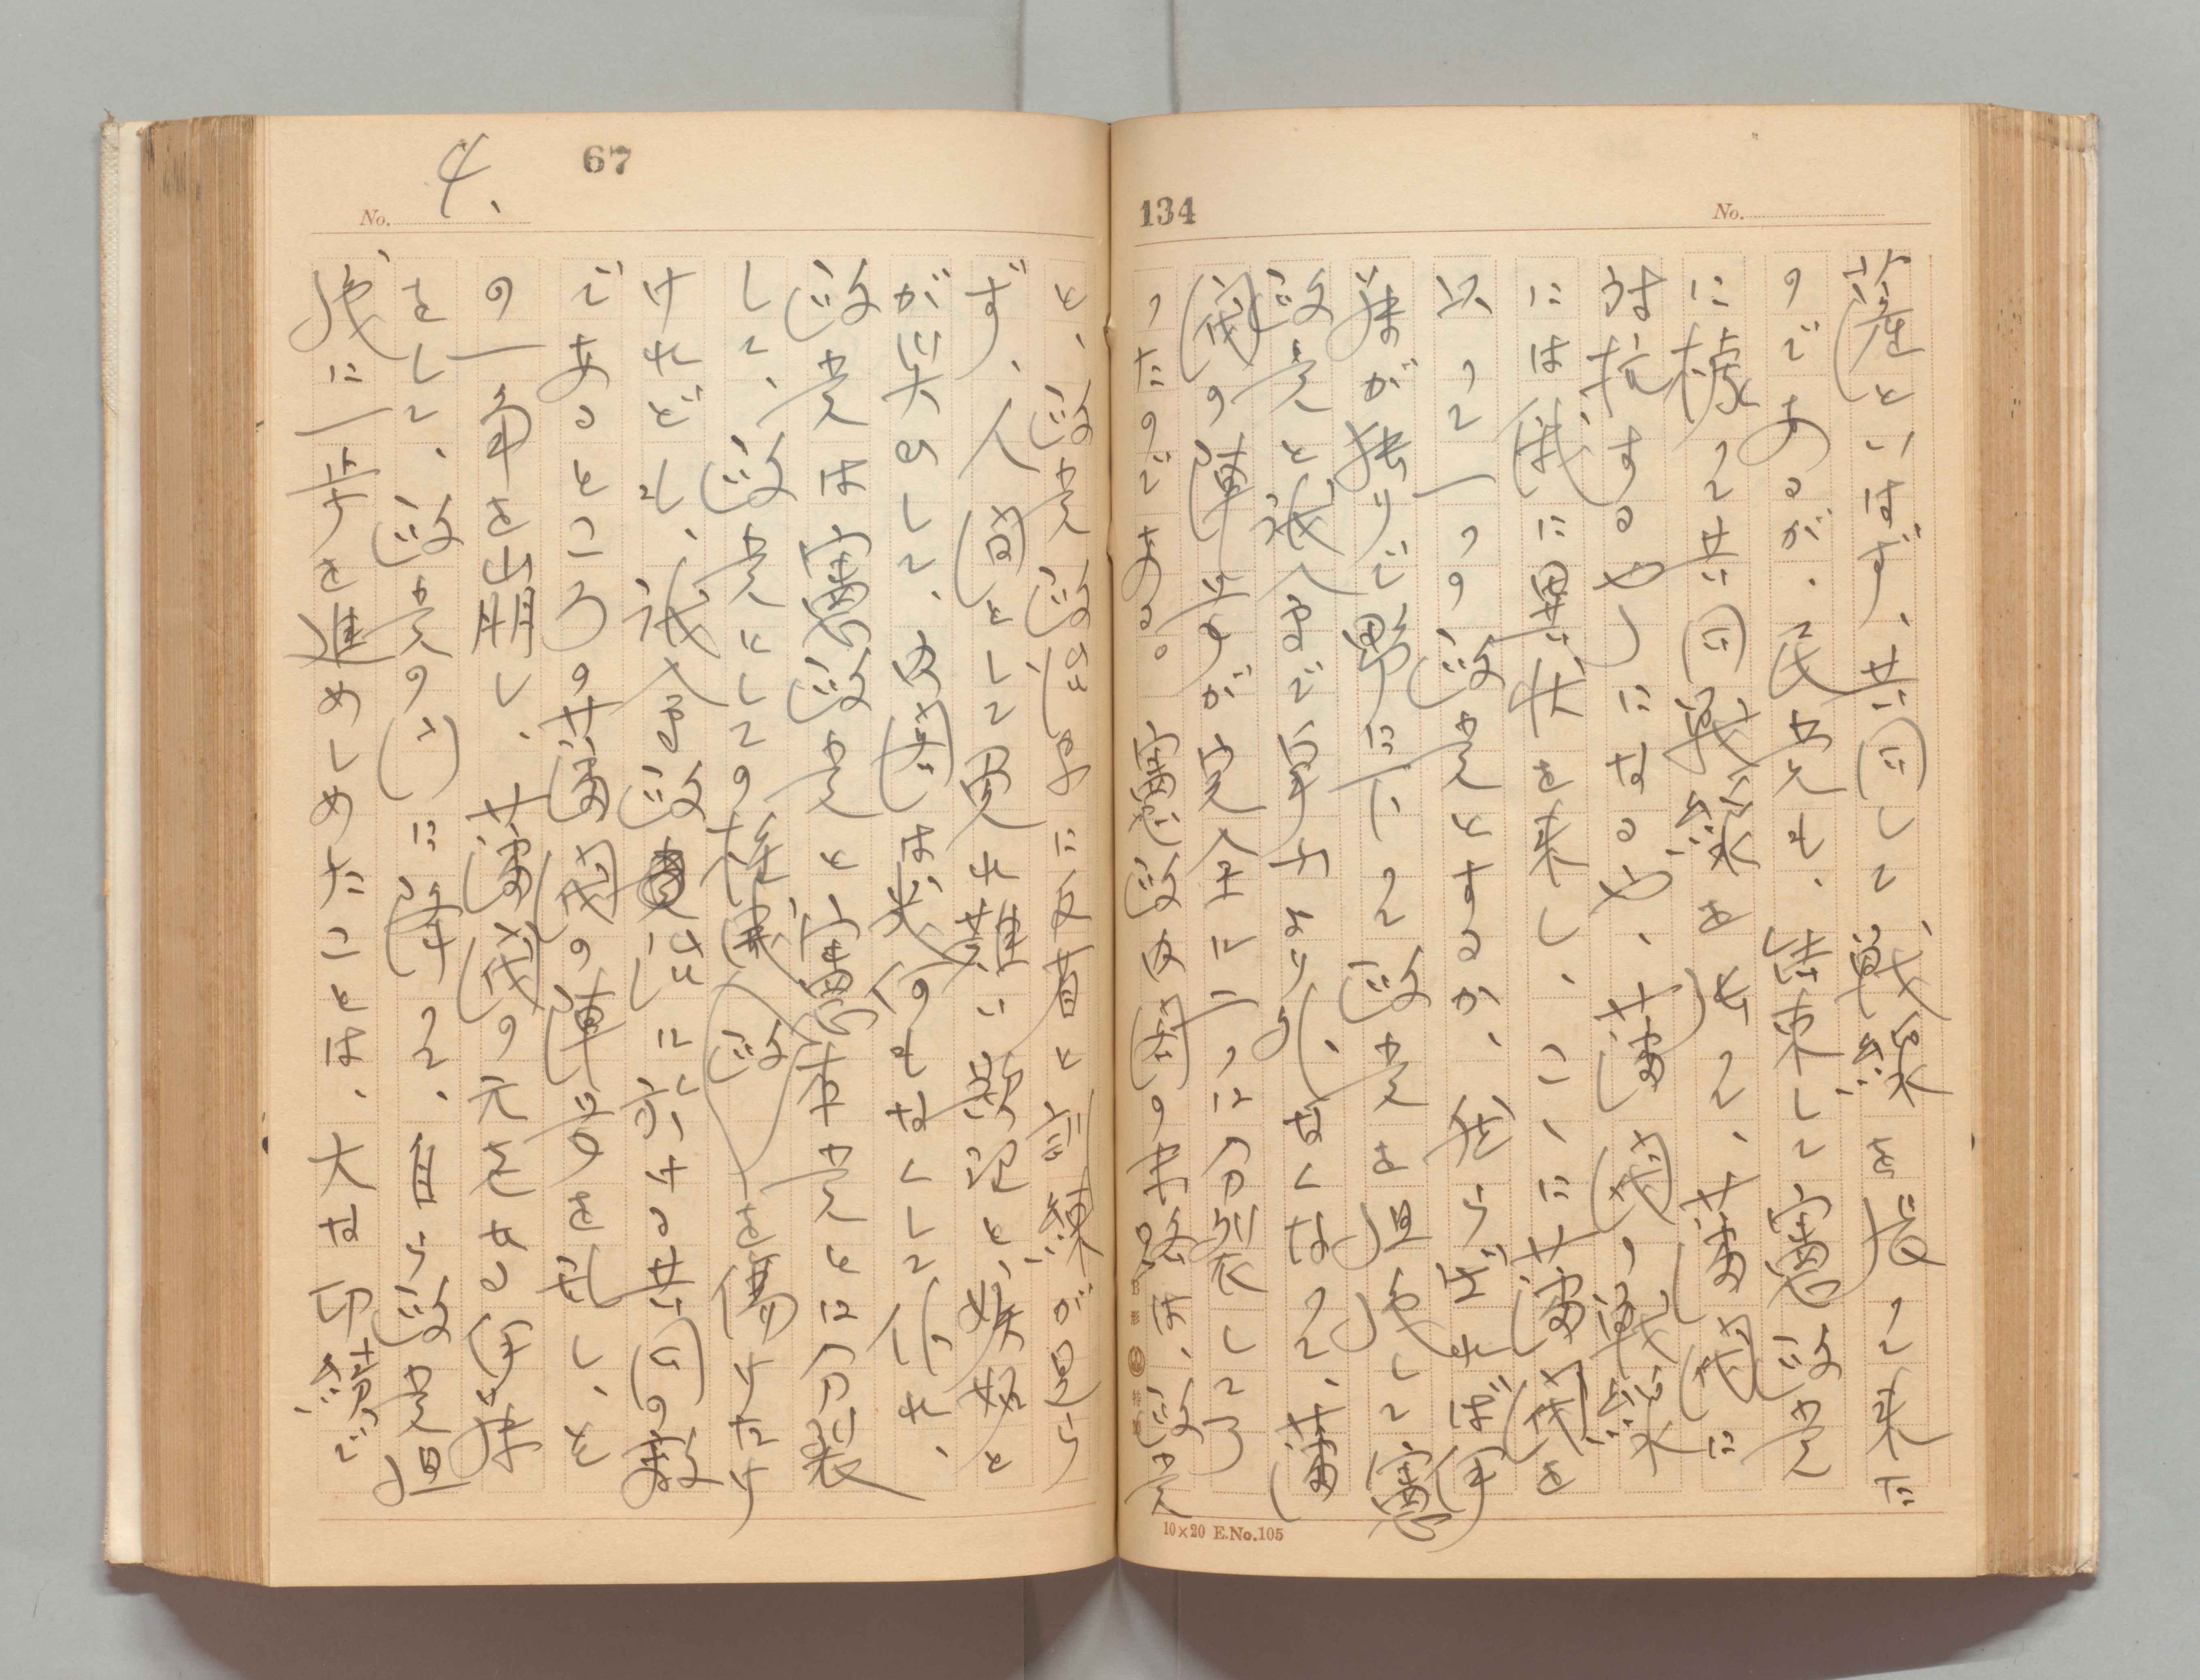 134
No.
薩といはず、共同して、戦線を張って来た
のであるが、民党も、結束して憲政党
に據って共同戦線を張って、藩閥に
対抗するやうになるや、藩閥の戦線
には俄に異状を来し、こゝに藩閥を
以って一つの政党とするか、然らざれば伊
藤が独りで野に下って政党を組織して憲
政党と まで争ふより外なくなって、藩
閥の陣営が完全に二つに分裂して了
つたのである。憲政内閣の末路は、政党
10×20 E.No.105
67
No. 4、
と、政党政治家に反省と訓練が足ら
ず、人間として免れ難い慾望と、嫉妬と
が災ひして、内閣は 何もなくして仆れ、
政党は憲政党と憲政本党とに分裂
して、政党としての を傷けた
けれども、 政治に於ける共同の敵
であるところの藩閥の陣営を乱し、そ
の一角を崩し、藩閥の元老なる伊藤
をして、政党の門に降って、自ら政党組
織に一歩を進めしめたことは、大な功績で